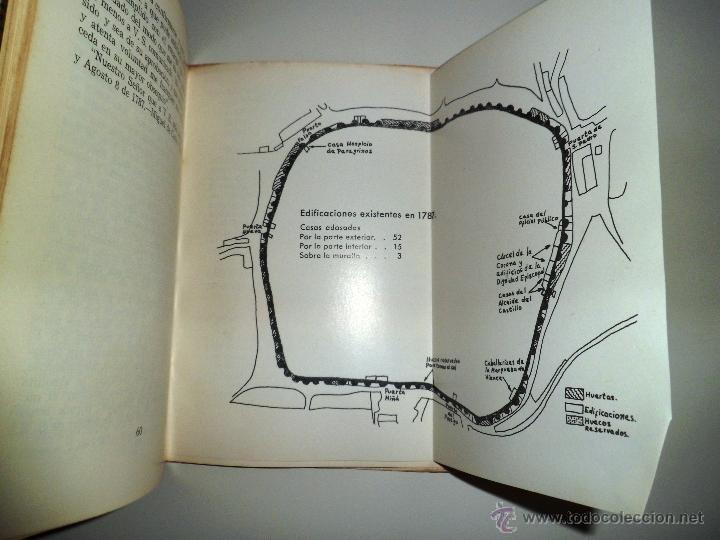 sido y sea de su
atenta voluntad
ceda en su mayor
"Nuestro Señor
y Agosto 8 de 1787.—Miguel
60
Puerta
Falsa
Casa Hospicio
de Peregrinos
Puerta
de S.
Pedro
Puerta
Nueva
Edificaciones existentes en 1787.
Casas adosadas
Por la parte exterior. . 52
Por la parte interior . . 15
Sobre la muralla . . . . 3
Casa del
oficial Público
Cárcel de la
Corona y
edificios de la
Dignidad Episcopal
Casas del
Alcaide del
Castillo
Caballerizas de
la Marquesa de
Viance
Huecos reservados
Puerta
Miñá
Huertas.
Edificaciones.
Huecos
Reservados.
© www.todocoleccion.net